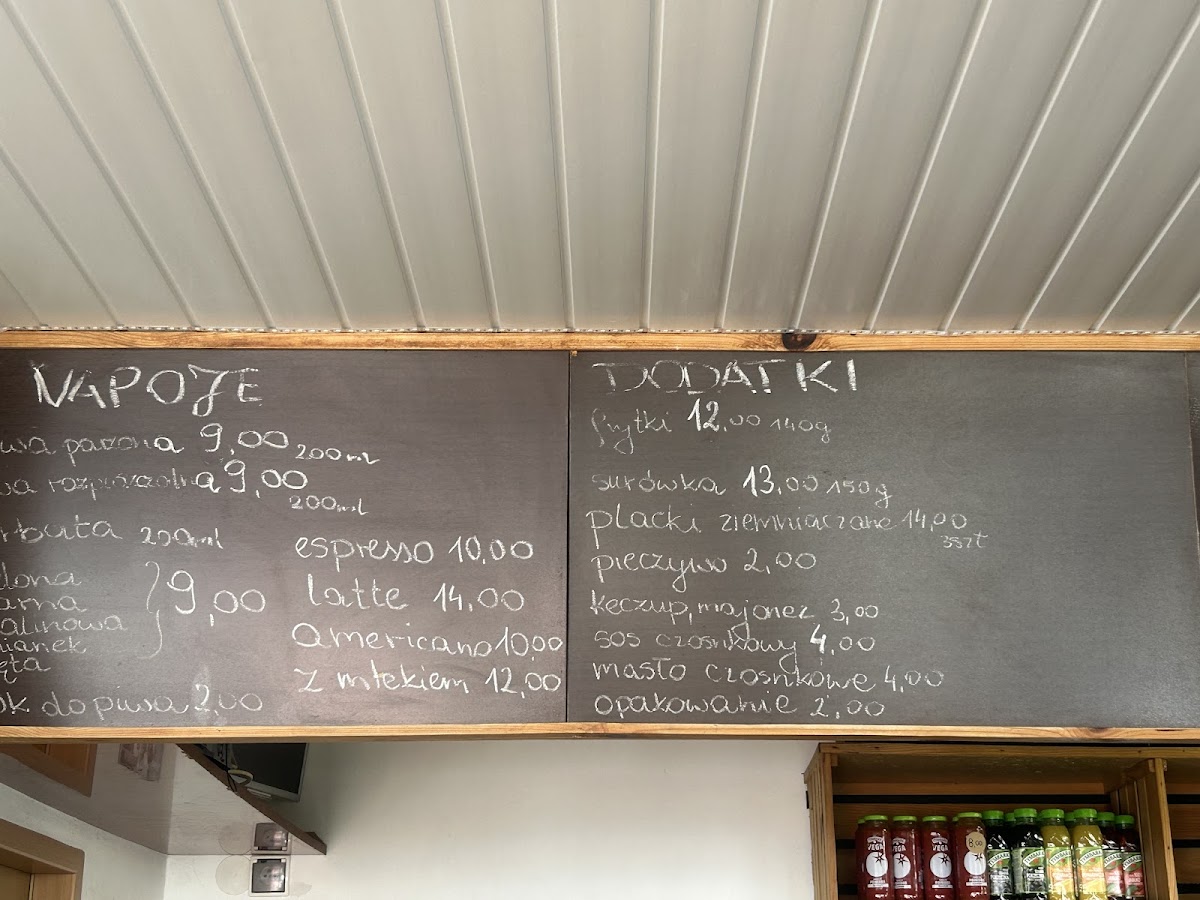 NAPOJE
wa parzona 9,00 200ml
wa rozpuszczalna 9,00
200ml
rbata 200ml
lona
arna
alinowa
mianek
ęta
9,00
ok do piwa 2,00
espresso 10,00
latte 14,00
americano 10,00
z mlekiem 12,00
DODATKI
frytki 12,00 140g
surówka 13,00 150g
placki ziemniaczane 14,00
3szt
pieczywo 2,00
keczup, majonez 3,00
sos czosnkowy 4,00
masło czosnkowe 4,00
opakowanie 2,00
VEGA
VEGA
VEGA
VEGA
8,00